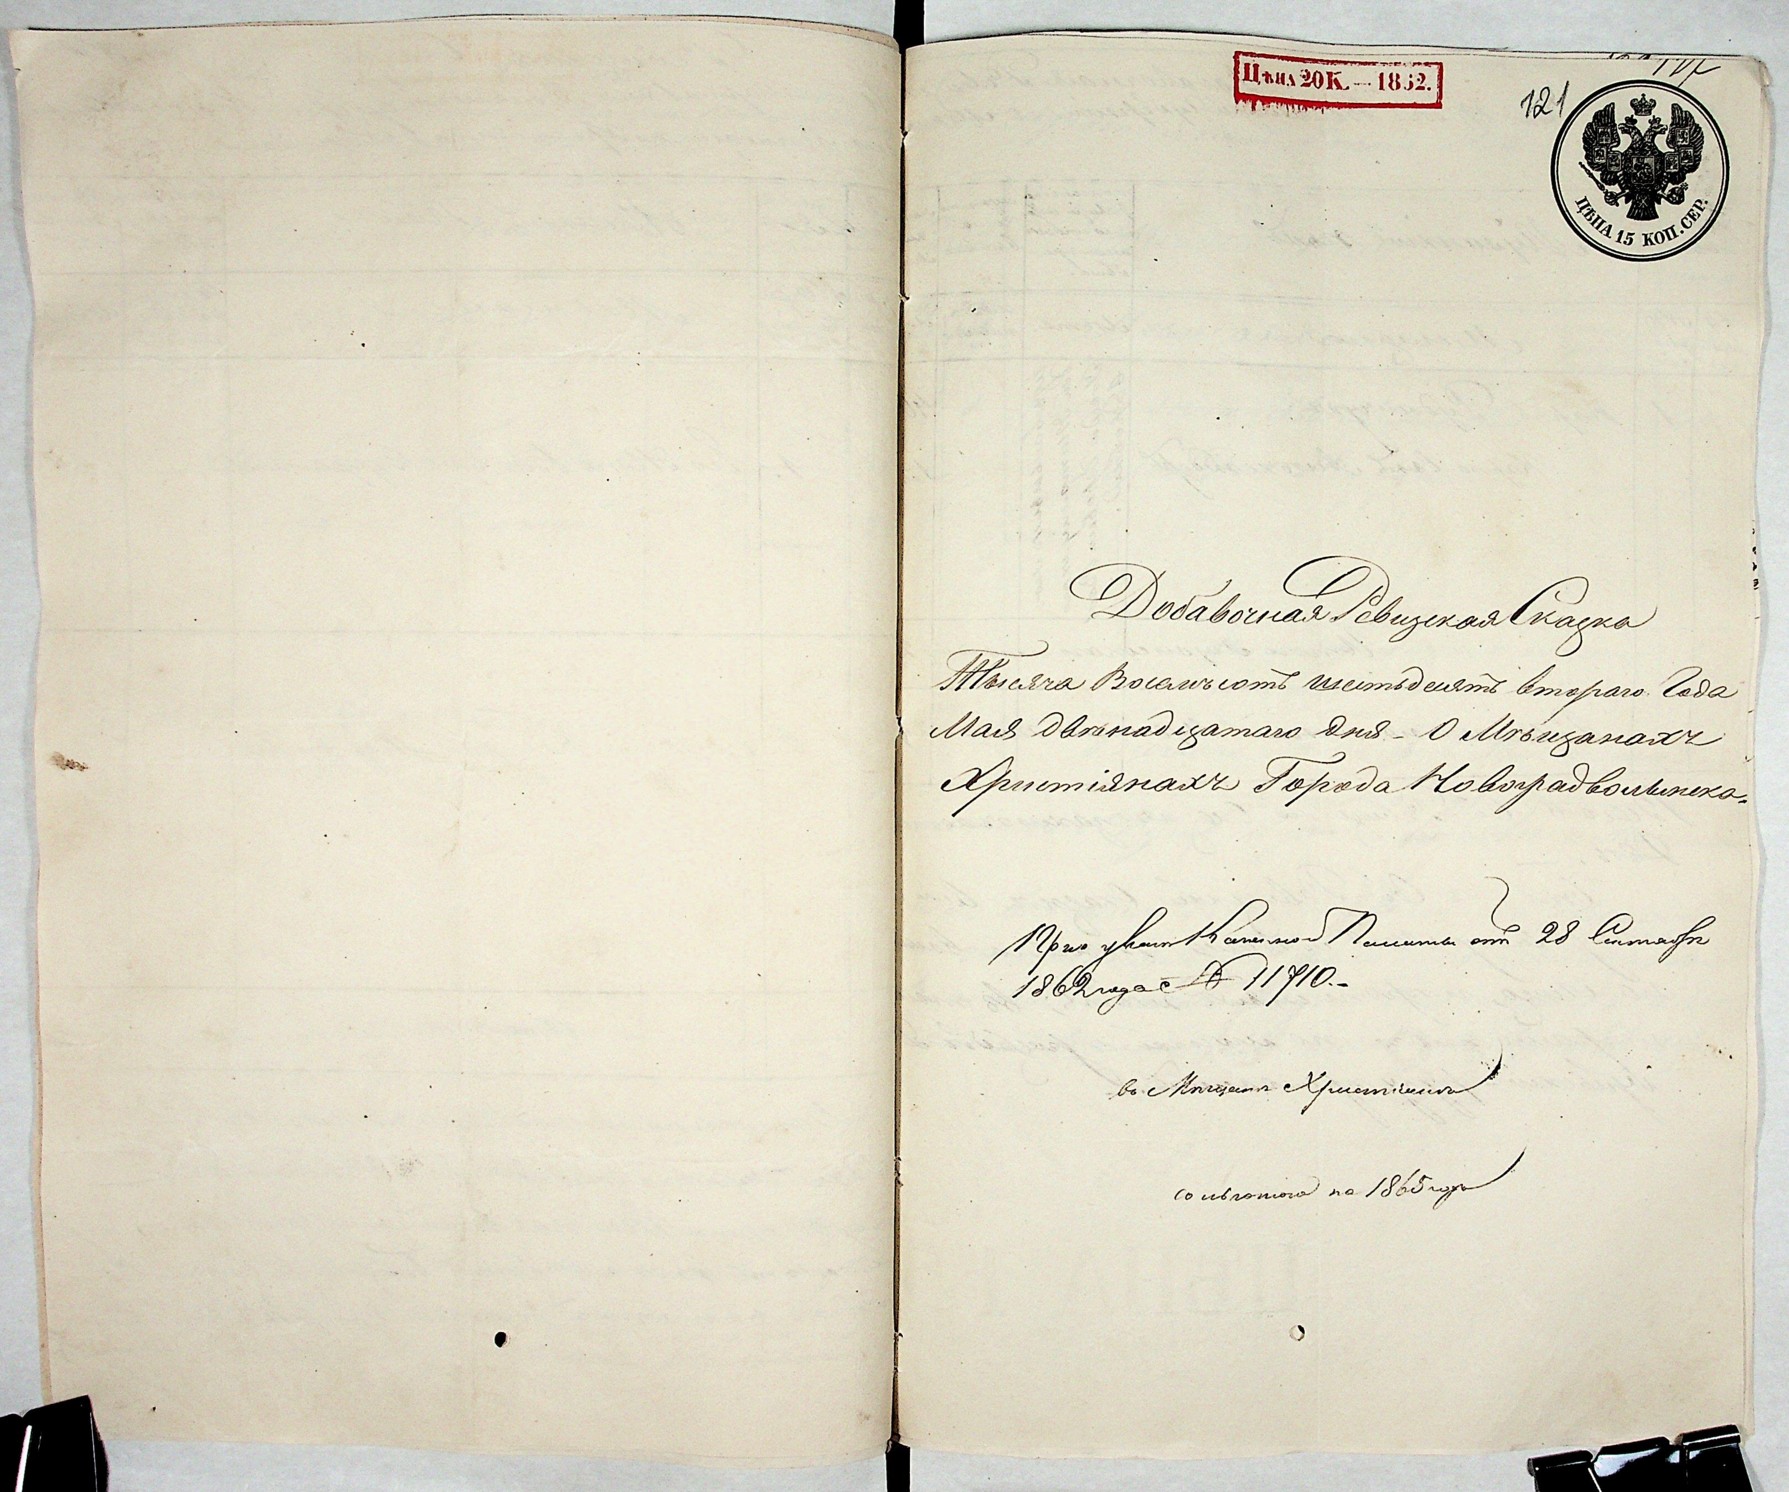 Цѣна 20 К. — 1862.
121
ЦѢНА 15 КОП. СЕР.
Добавочная Ревизская Сказка
Тысяча Восемьсотъ шестьдесятъ втораго Года
Мая двѣнадцатаго дня – О Мѣщанахъ
Христіянахъ Города Новоградволынска.
При указѣ Казенной Палаты отъ 28 Сентября
1862 года с № 11710.–
въ Мѣщане Христіяне
со льготою по 1865 годъ